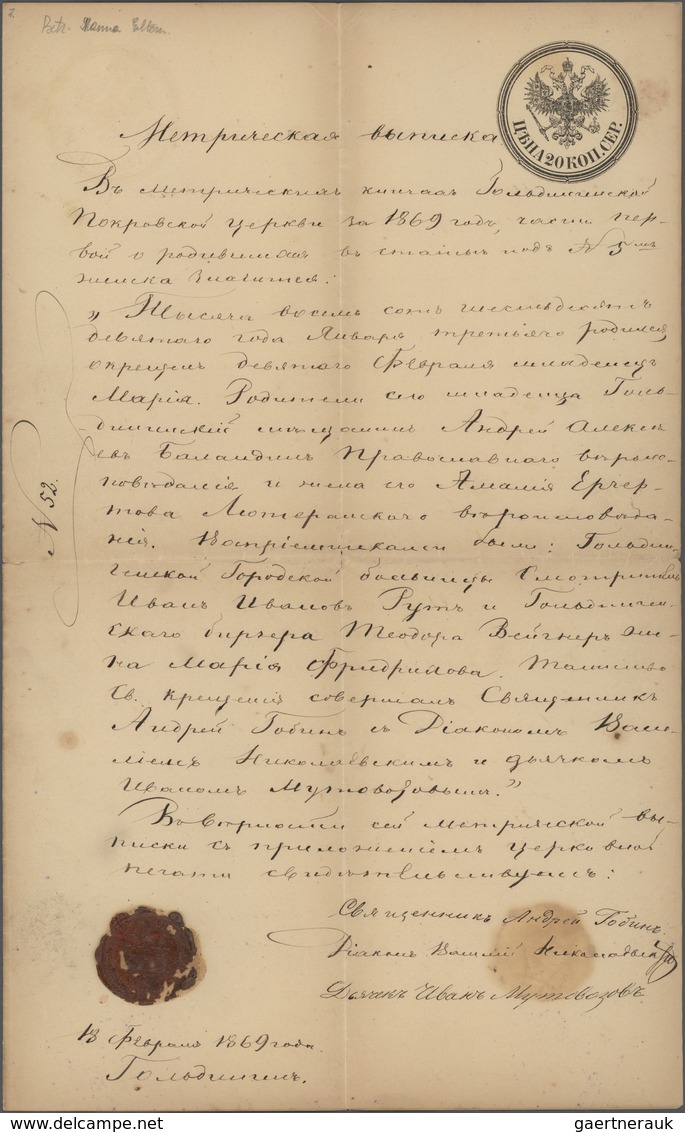 Betr. Mama Eltern.
ЦѢНА 20 КОП. СЕР.
Метрическая выписка
Въ метрическихъ книгахъ Гольдингенской
Покровской церкви за 1869 годъ, части пер-
вой о родившихся въ статьѣ подъ N 5мъ
значится:
„Тысяча восемь сотъ шестьдесятъ
девятаго года Января третьяго родился
окрещенъ девятаго Февраля младенецъ
Марія. Родители сего младенца Голь-
дингенскій мѣщанинъ Андрей Алексѣ-
евъ Баландинъ Православнаго вѣроис-
повѣданія и жена его Амалія
Лютеранскаго вѣроисповѣда-
нія. Воспріемниками были: Гольдин-
генской Городской больницы Смотритель
Иванъ Ивановъ Рутъ и Гольдинген-
скаго биргера Теодора Вейгнеръ же-
на Марія Фридрихова. Таинство
Св. крещенія совершалъ Священникъ
Андрей Гобинъ съ Діакономъ Васи-
ліемъ и дьячкомъ
Иваномъ Мутовозовымъ."
Въ вѣрности сей метрической вы-
писки съ приложеніемъ церковной
печати свидѣтельствуемъ:
Священникъ Андрей Гобинъ.
Діаконъ Василій
Дьячекъ Иванъ Мутовозовъ.
N 52.
13 Февраля 1869 года.
Гольдингенъ.
gaertnerauk